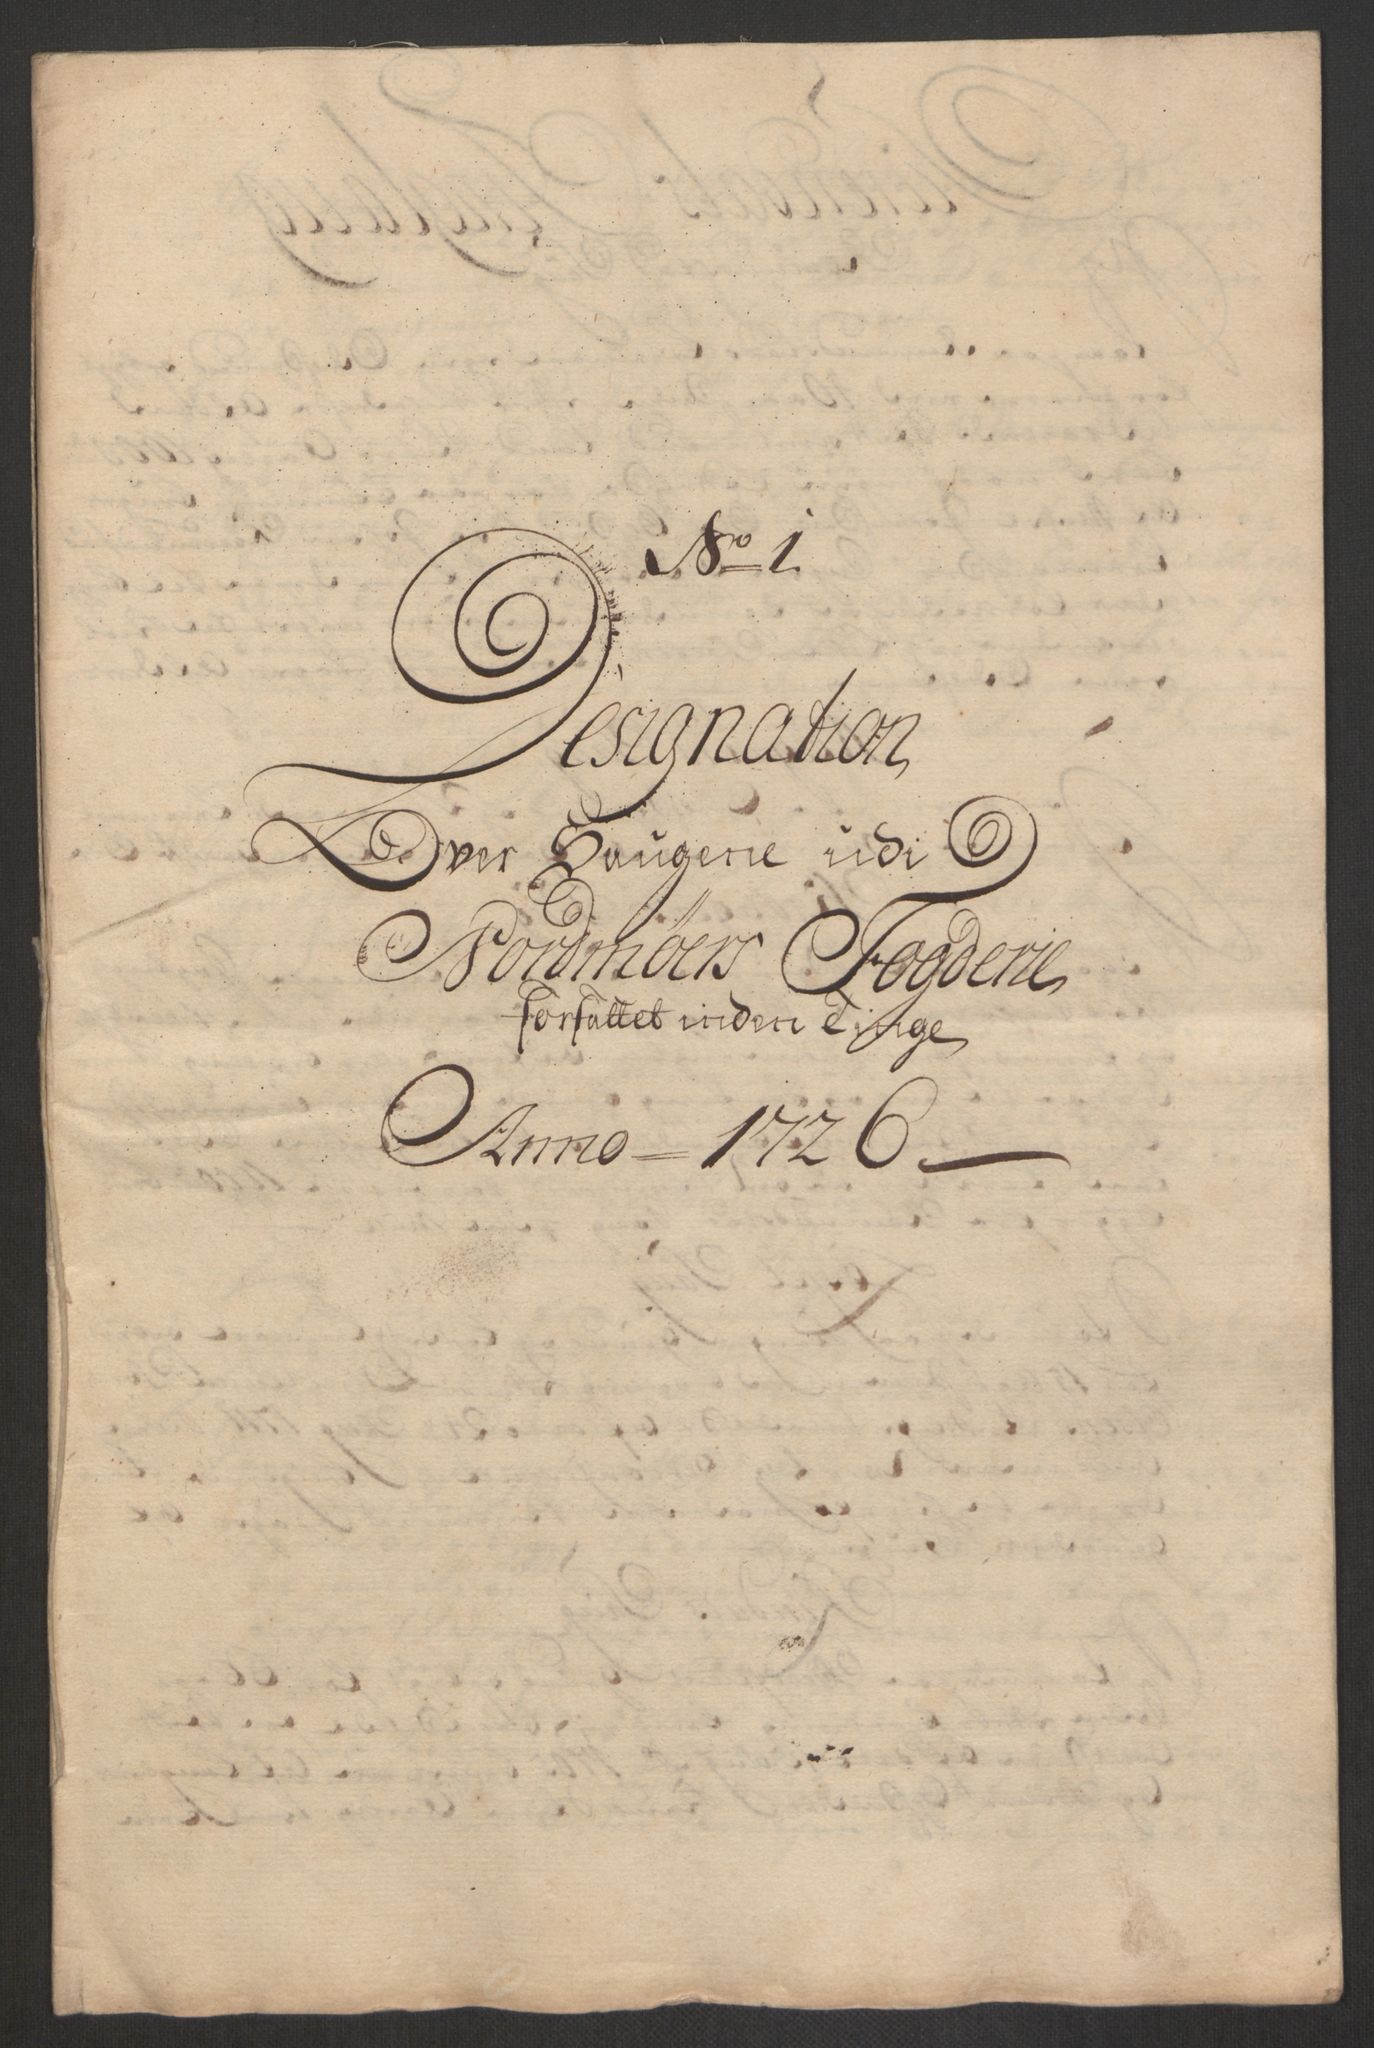 No 1
Designation
Over Saugene udi
Nordmöers Fogderie
forfattet inden Tinge
Anno = 1726